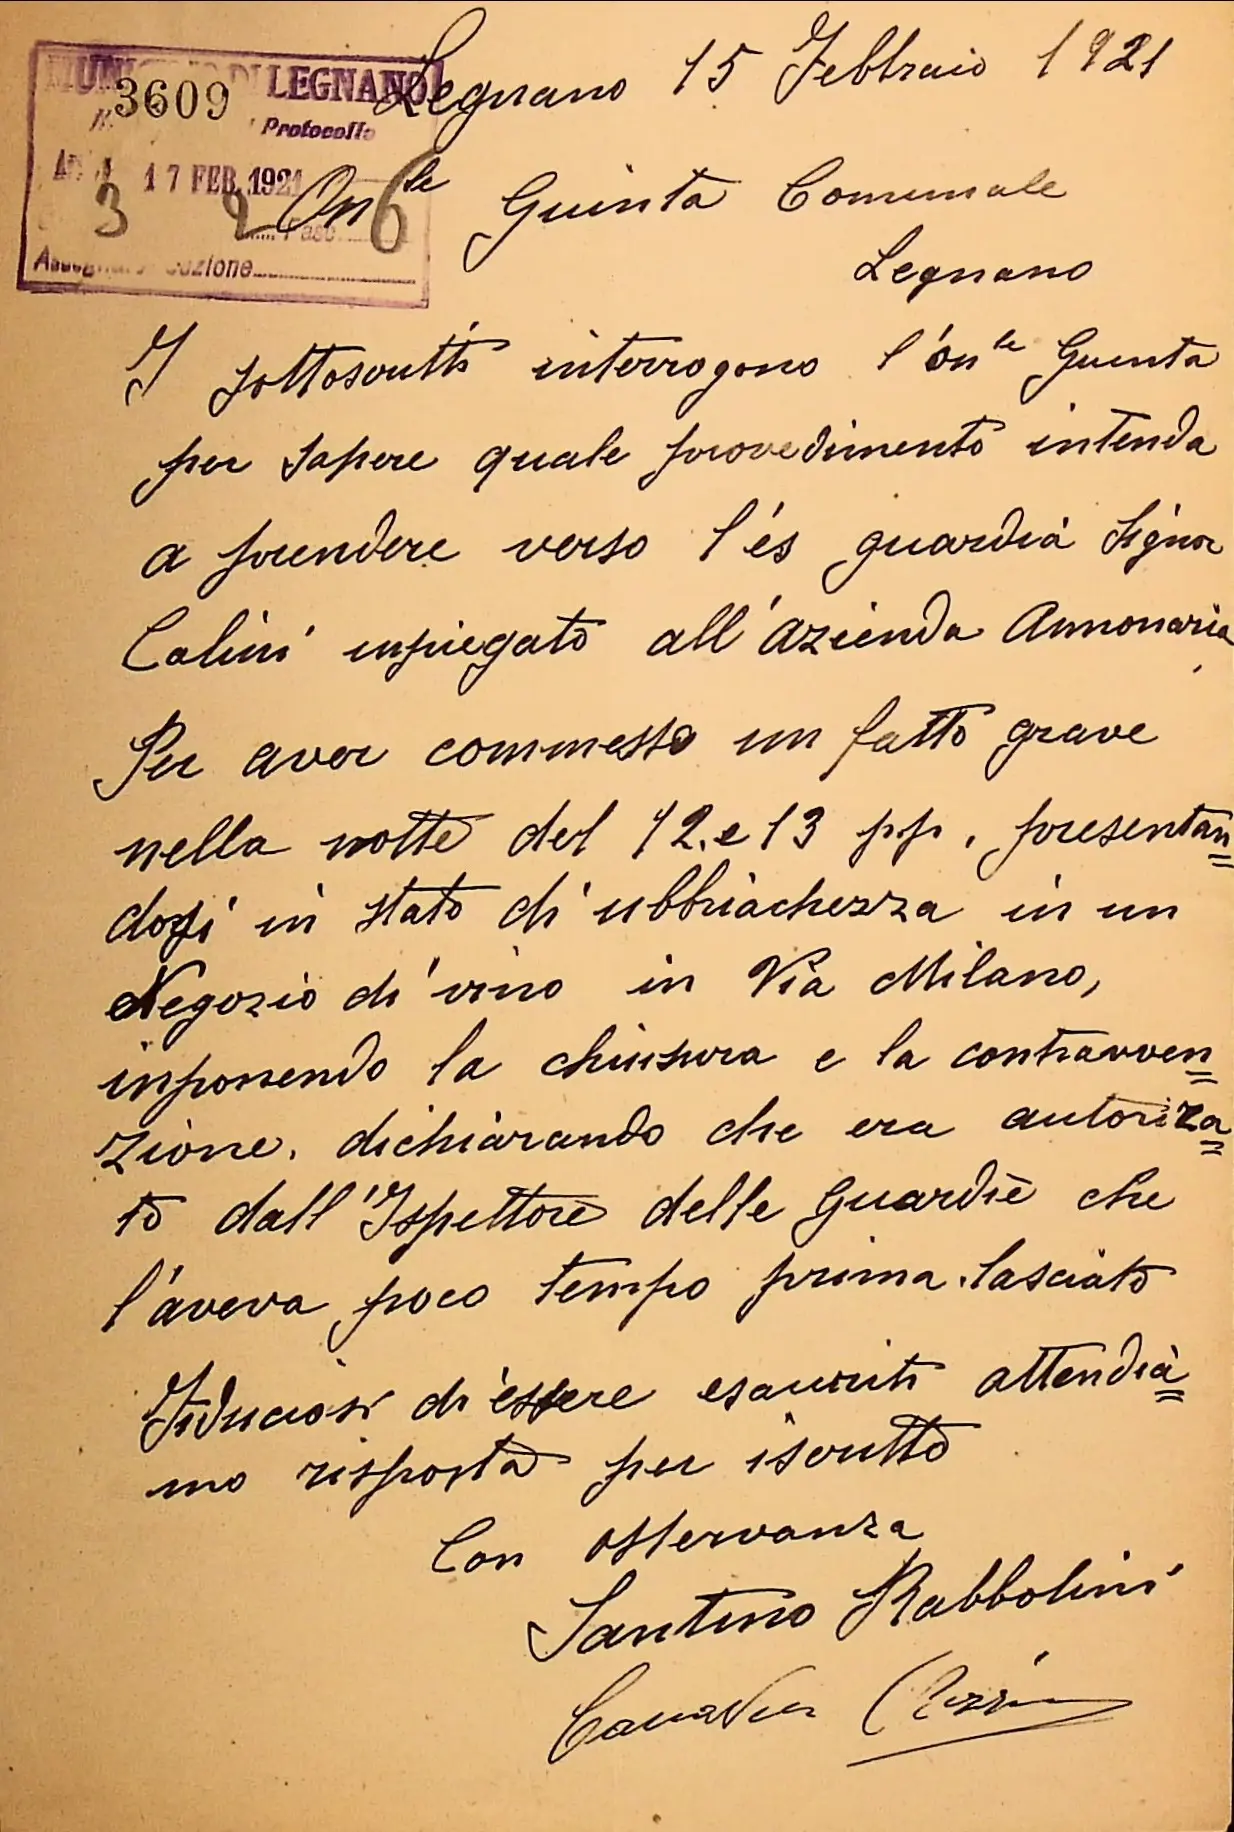 MUNICIPIO DI LEGNANO
N. 3609 Protocollo
17 FEB. 1921
3 2 Fasc. 6
Legnano 15 Febbraio 1921
On.le Guinta Comunale
Legnano
I sottoscritti interrogono l'on.le Guinta
per sapere quale provedimento intenda
a prendere verso l'és guardia Signor
Calini inpiegato all'azienda Annonaria
Per aver commesso un fatto grave
nella notte del 12. e 13 pp, presentan=
dosi in stato di ubbriachezza in un
Negozio di vino in Via Milano,
inponendo la chiusura e la contravven=
zione. dichiarando che era autoriza=
to dall'Ispettore delle guardie che
l'aveva poco tempo prima lasciato
Fiduciosi di essere esauriti attendia=
mo risposta per iscritto
Con osservanza
Santino Rabbolini